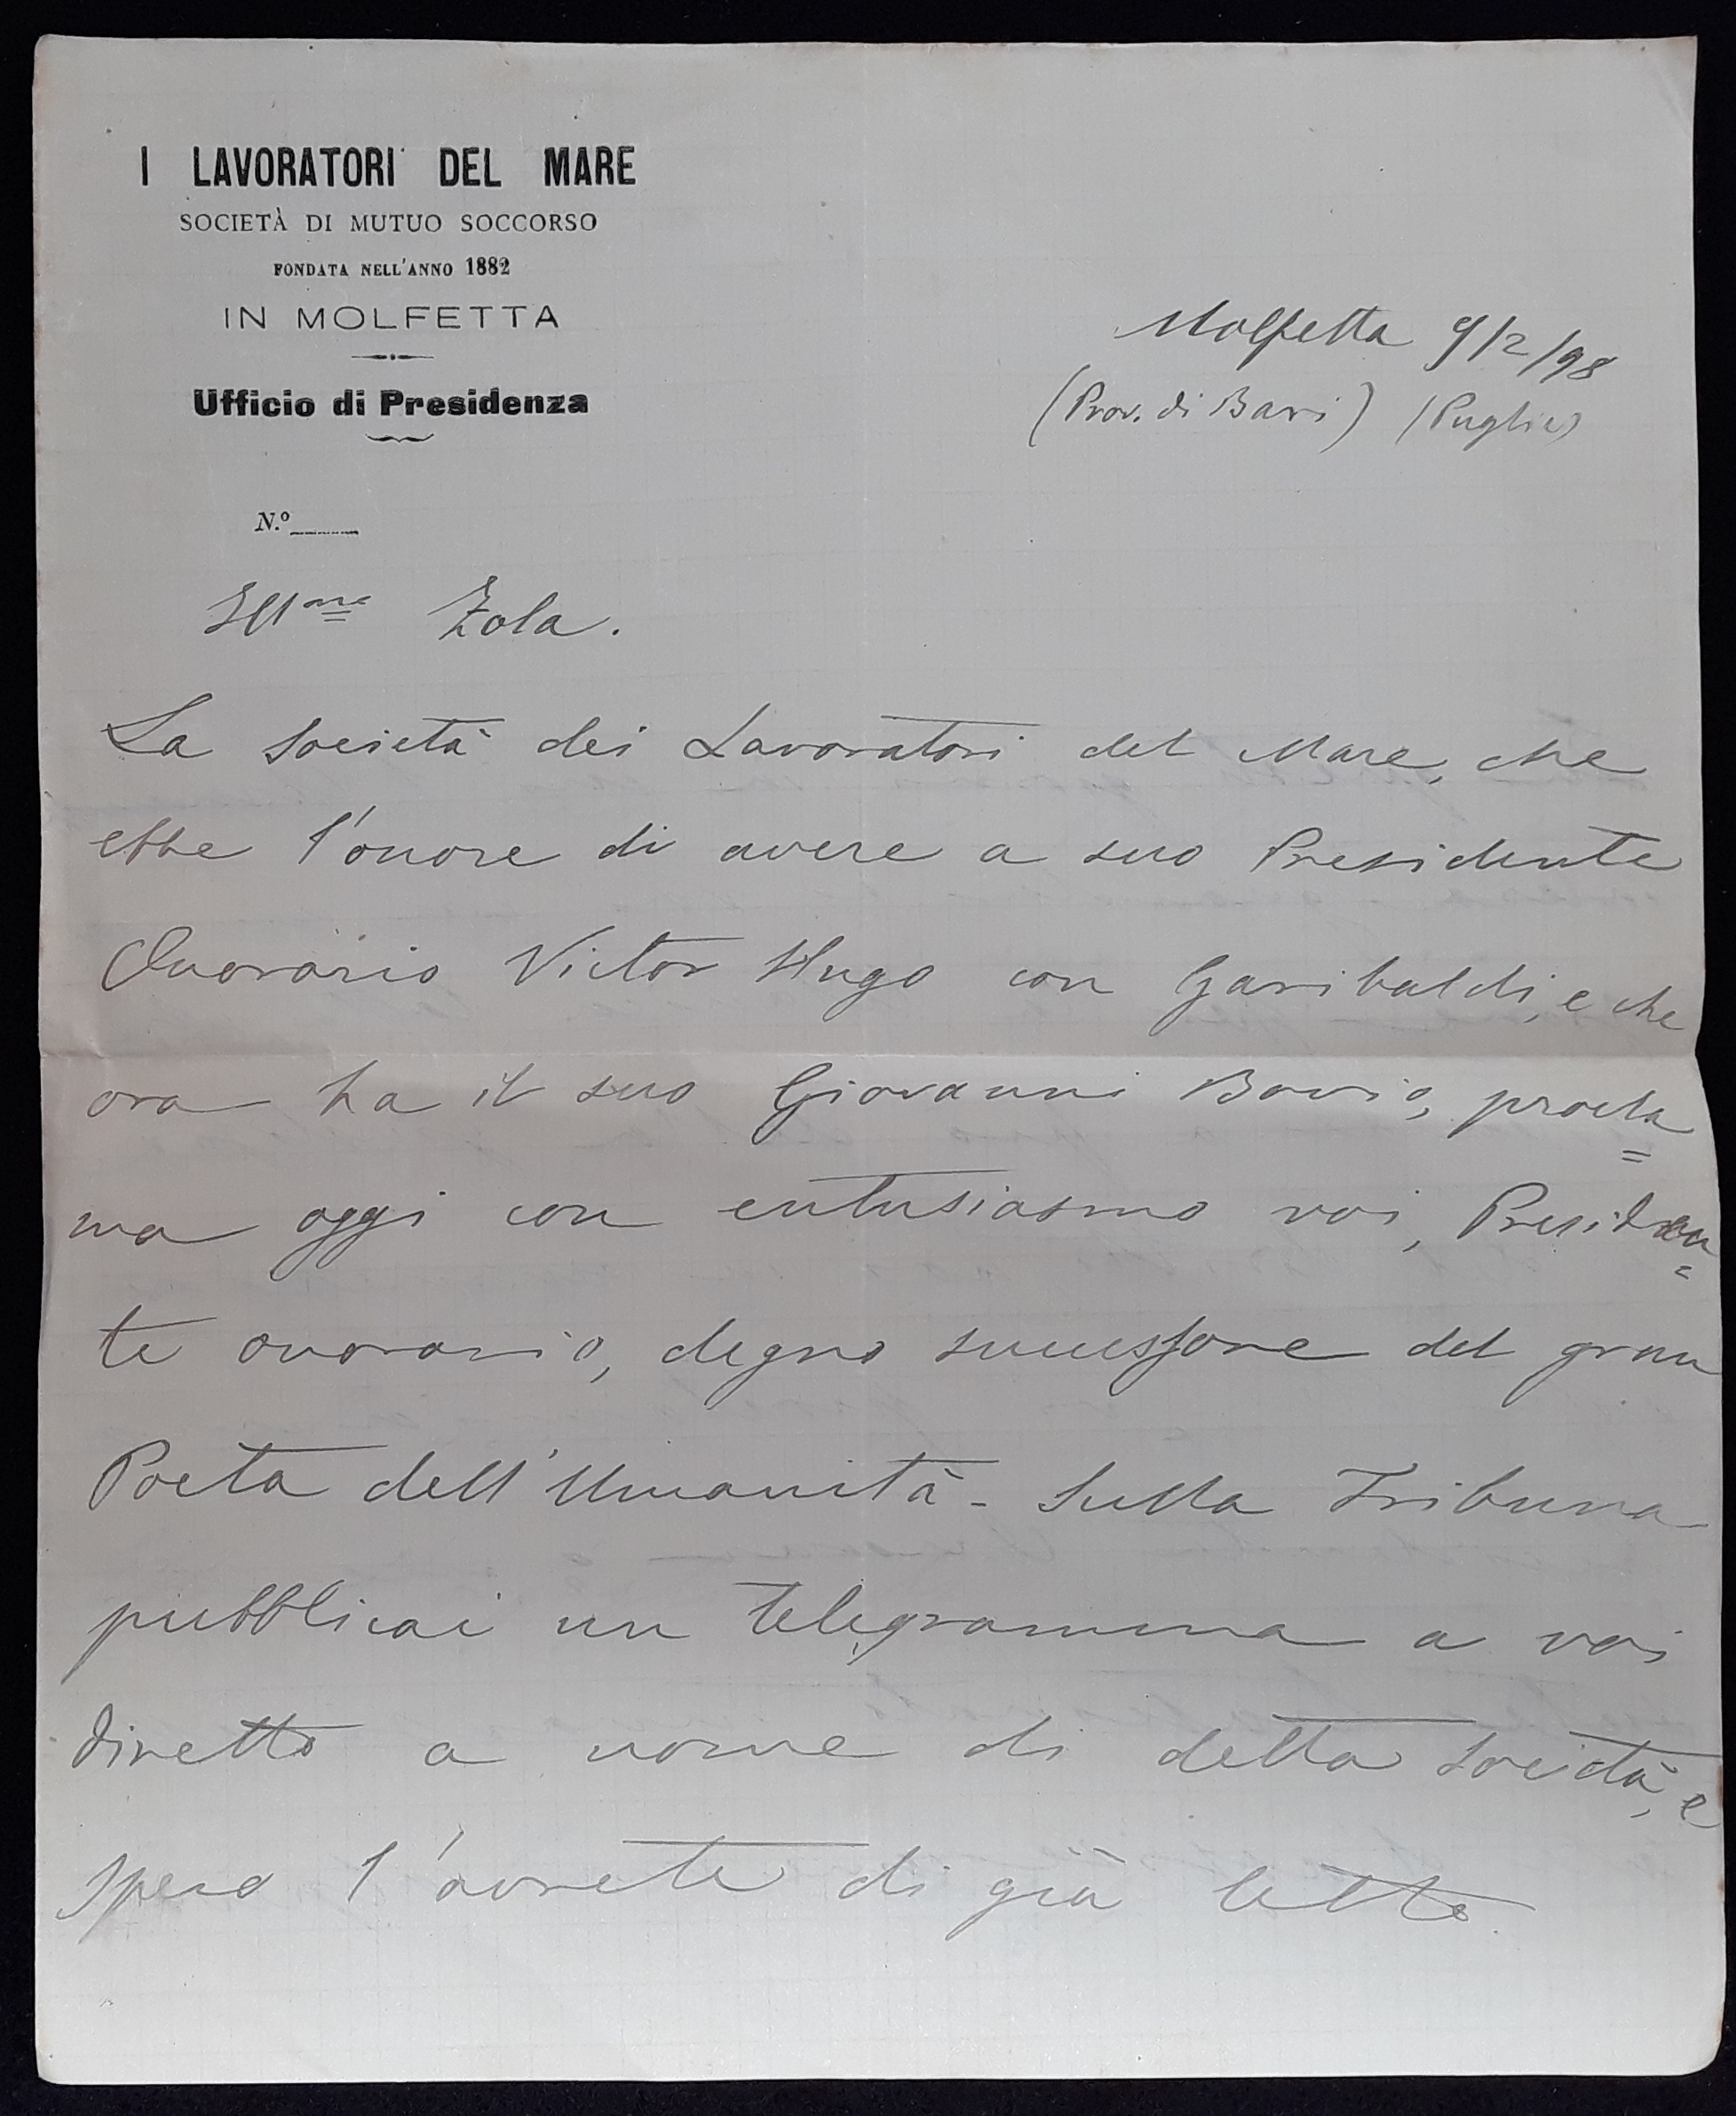 I LAVORATORI DEL MARE
SOCIETÀ DI MUTUO SOCCORSO
FONDATA NELL'ANNO 1882
IN MOLFETTA
Ufficio di Presidenza
N.º
Molfetta 9/2/98
(Prov. di Bari) (Puglie)
Ill.mo Zola.
La Società dei Lavoratori del Mare, che
ebbe l'onore di avere a suo Presidente
Onorario Victor Hugo con Garibaldi, e che
ora ha il suo Giovanni Bovio, procla=
ma oggi con entusiasmo voi, Presiden=
te onorario, degno successore del gran
Poeta dell'Umanità - Sulla Tribuna
pubblicai un telegramma a voi
diretto a nome di detta Società, e
spero l'avrete di già letto.